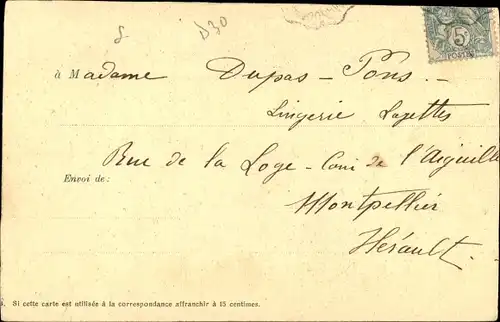 8
D30
5
POSTES
à Madame Dupas - Pons. -
Lingerie Layettes
Rue de la Loge - Coin de l'Aiguille
Envoi de:
Montpellier
Hérault.
Si cette carte est utilisée à la correspondance affranchir à 15 centimes.